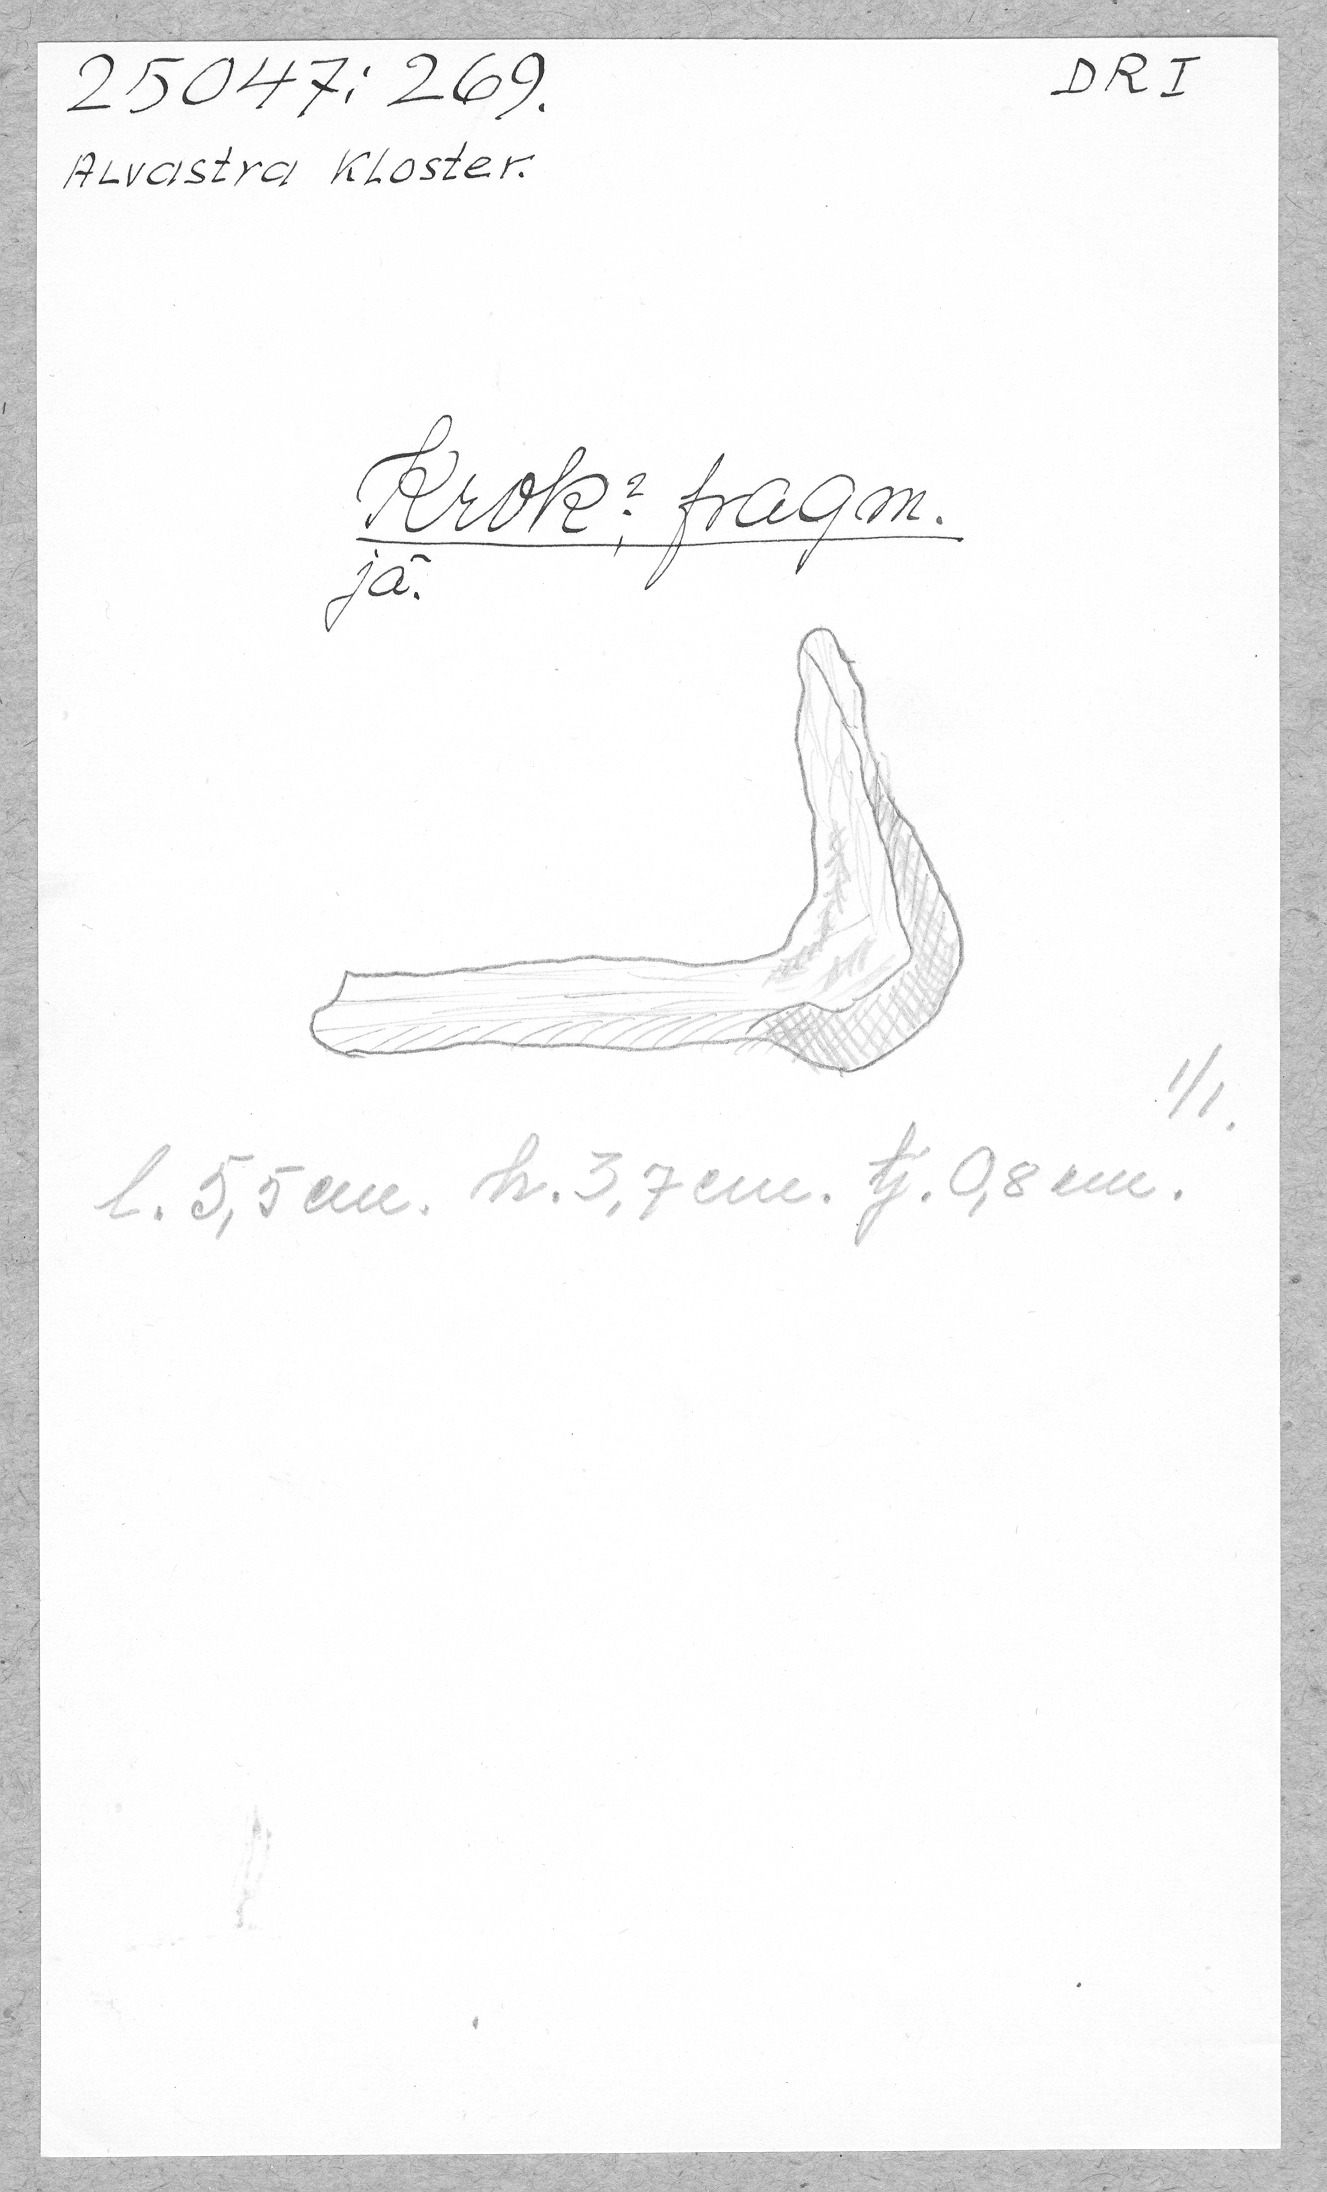 25047: 269.
DRI
Alvastra Kloster.
Krok?, fragm.
jä.
1/1.
l. 5,5 cm. h. 3,7 cm. tj. 0,8 cm.